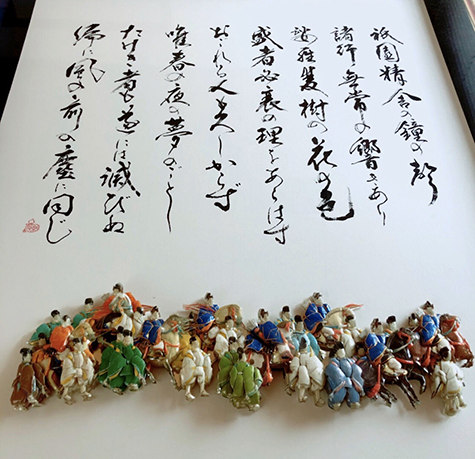 祇園精舎の鐘の声
諸行無常の響きあり
娑羅双樹の花の色
盛者必衰の理をあらはす
おごれる人も久しからず
唯春の夜の夢のごとし
たけき者も遂には滅びぬ
偏に風の前の塵に同じ